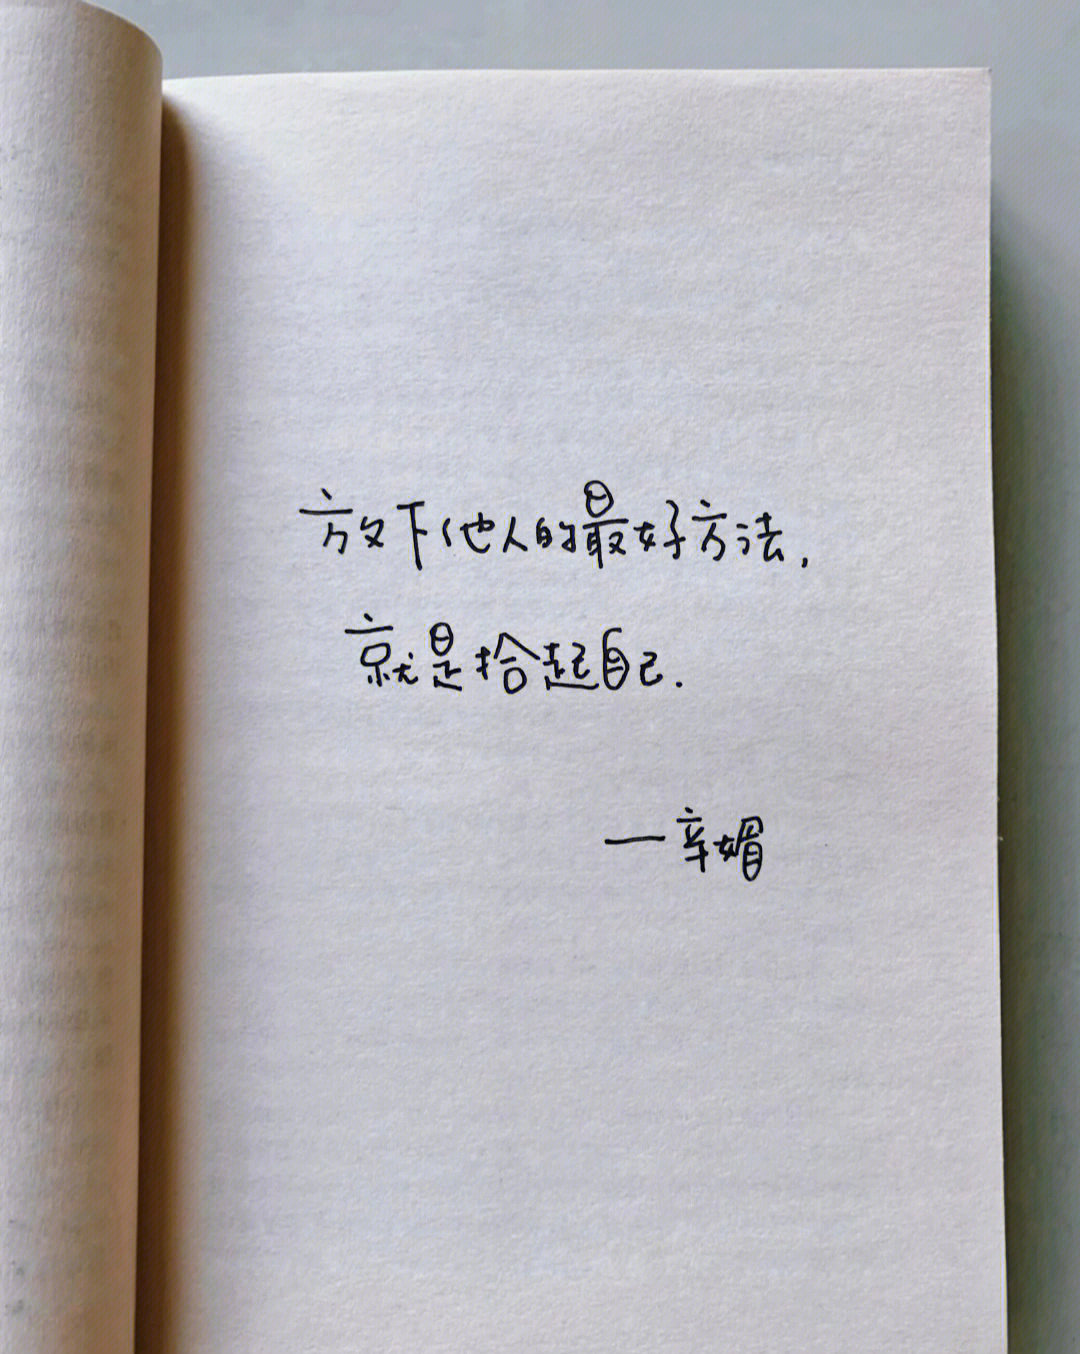 放下他人的最好方法,
就是拾起自己.
—辛媚